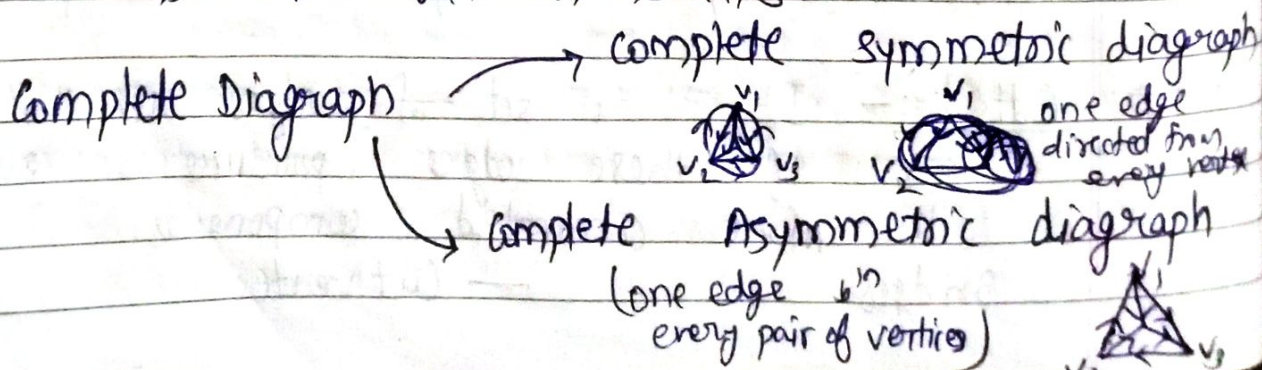 Complete Diagraph
complete symmetric diagraph
V1
V2 V3
V1
V2
one edge
directed from
every vertex
Complete Asymmetric diagraph
(one edge b/n
every pair of vertices)
V1
V3